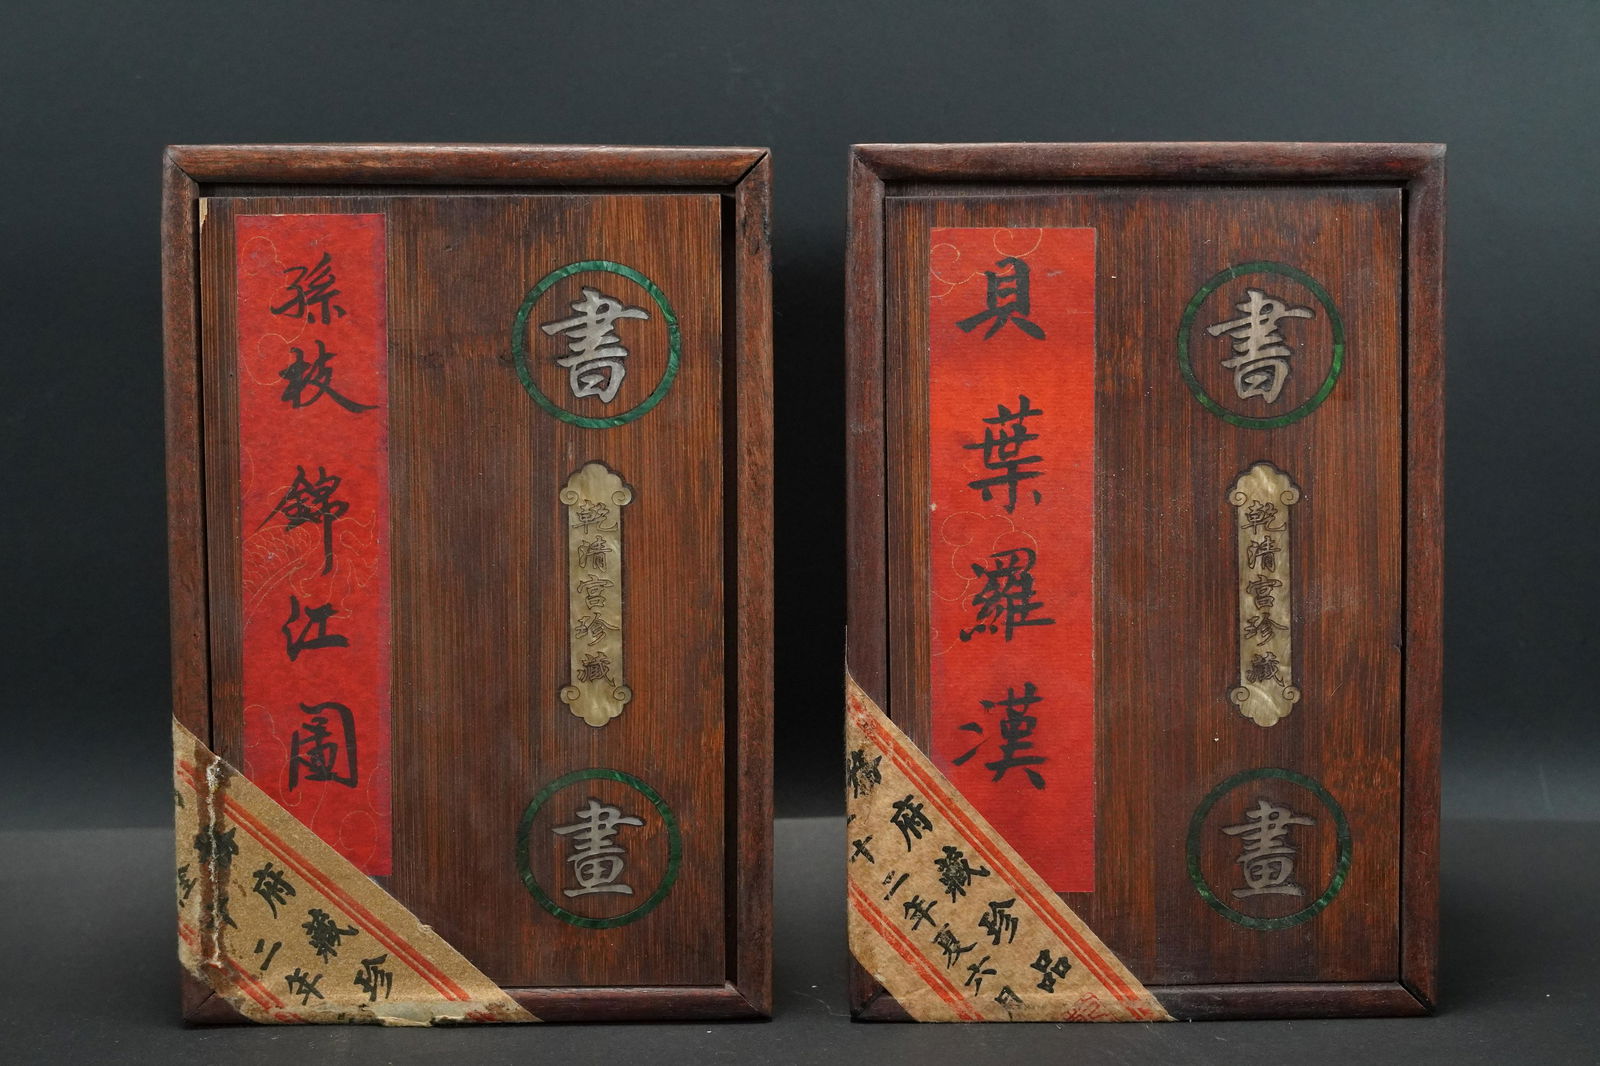 孫枝錦江圖
書
乾清宮珍藏
畫
府藏珍
二年
貝葉羅漢
書
乾清宮珍藏
畫
府藏珍品
十二年夏六月